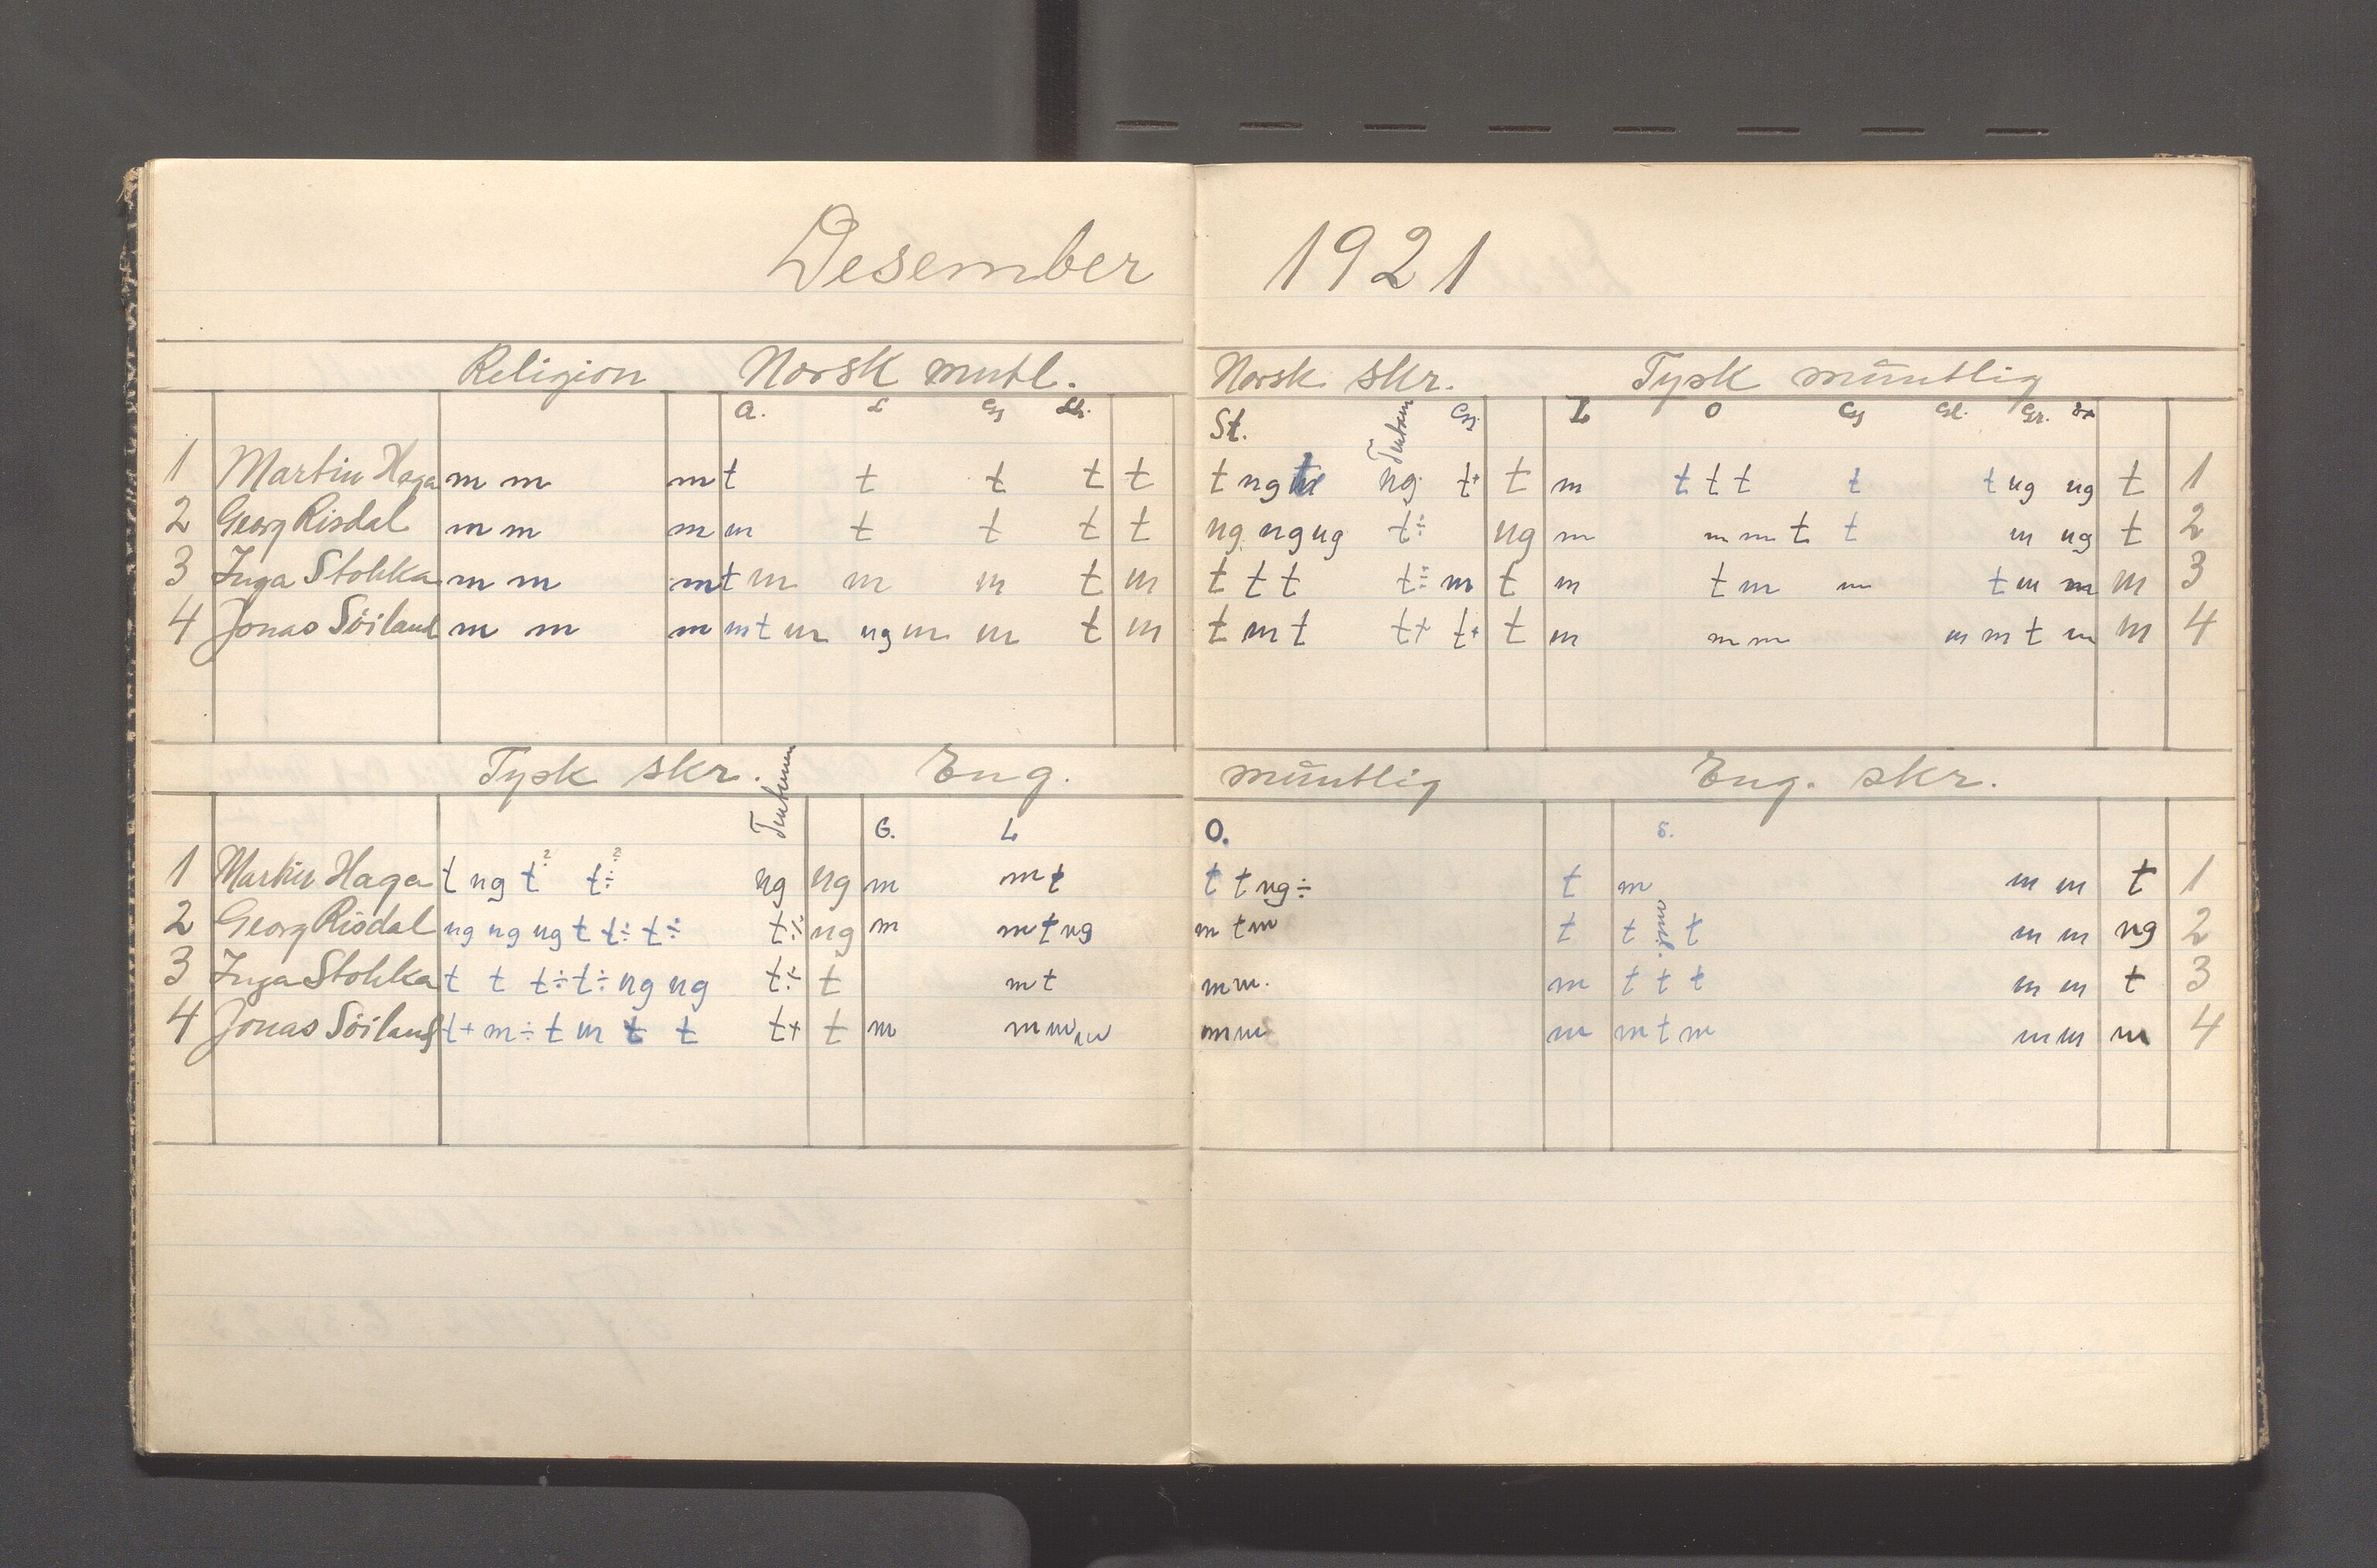 Desember 1921
Religion Norsk mutl. Norsk skr. Tysk müntlig
a. L St. Tentamen L O Gr.
1 Martin Haga m m m t t t t t t ng ng t+ t m t t t t t ng ng t 1
2 Georg Risdal m m m m t t t t ng ng ng t÷ ng m m m t t m ng t 2
3 Inga Stokka m m m t m m m t m t t t t÷ m t m t m m t m m m 3
4 Jonas Söiland m m m m t m ng m m t m t m t t+ t+ t m m m m m t m m 4
Tysk skr. Eng. müntlig Eng. skr.
Tentamen G. L O. S.
1 Martin Haga t ng t ? t÷ ? ng ng m m t t t ng÷ t m m m t 1
2 Georg Risdal ng ng ng t t÷ t÷ t÷ ng m m t ng m t m t t t m m ng 2
3 Inga Stokka t t t÷ t÷ ng ng t÷ t m t m m. m t t t m m t 3
4 Jonas Söiland t+ m÷ t m t t t+ t m m m m m m m m t m m m m 4